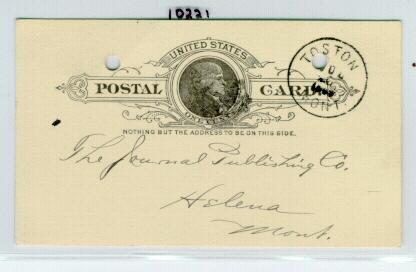 10221
UNITED STATES
POSTAL CARD
ONE CENT
NOTHING BUT THE ADDRESS TO BE ON THIS SIDE.
TOSTON
MONT.
The Journal Publishing Co.
Helena
Mont.